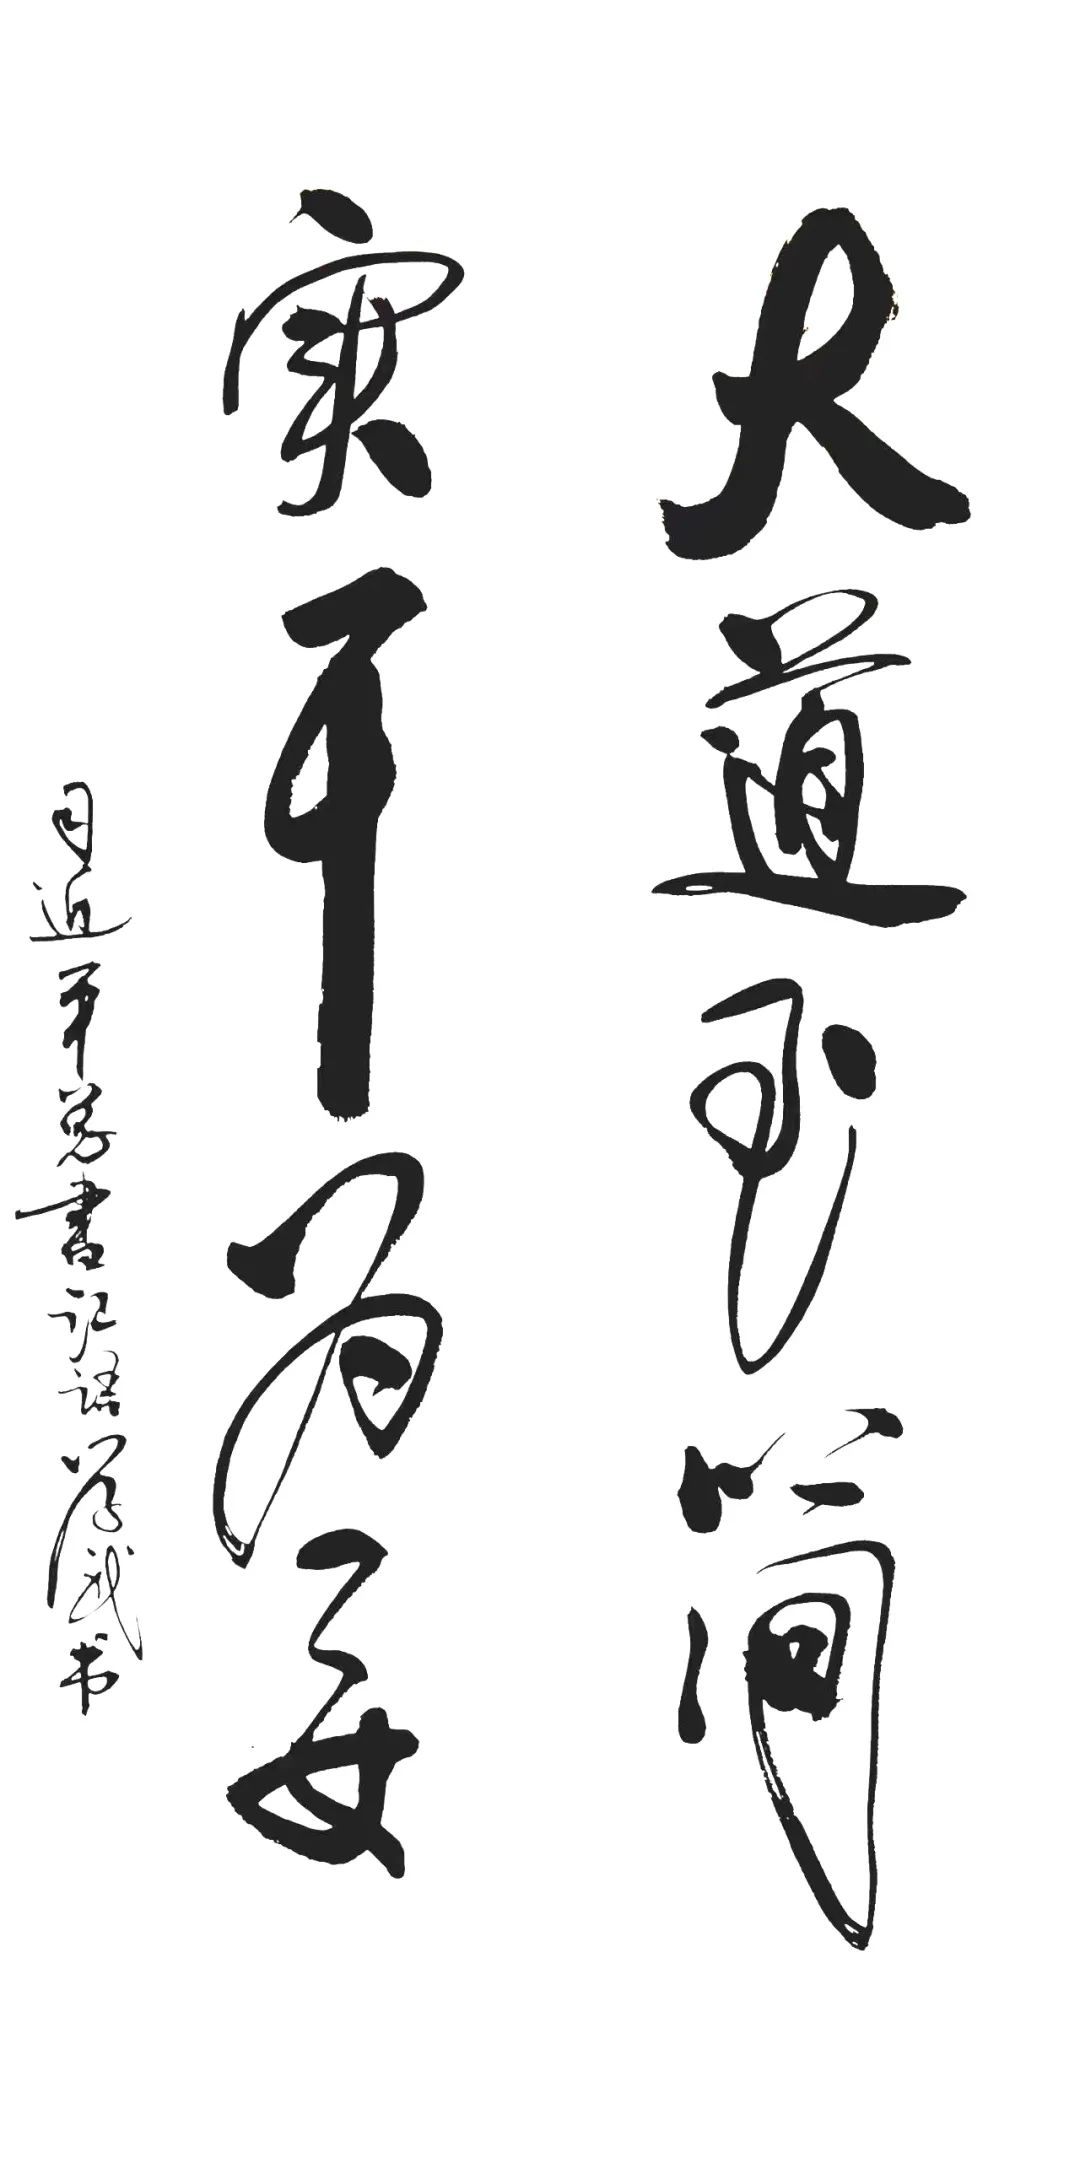 大道至简
实干为要
习近平总书记语 学武书